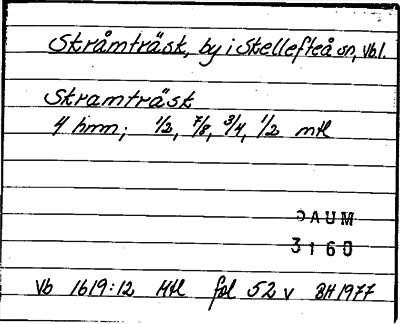 Stråmträsk, by i Skellefteå sn, Vb.l.
Stramträsk
4 hmn; 1/2, 7/8, 3/4, 1/2 mtl
DAUM
3160
Vb 1619:12 Mtl fol 52 v BH 1977